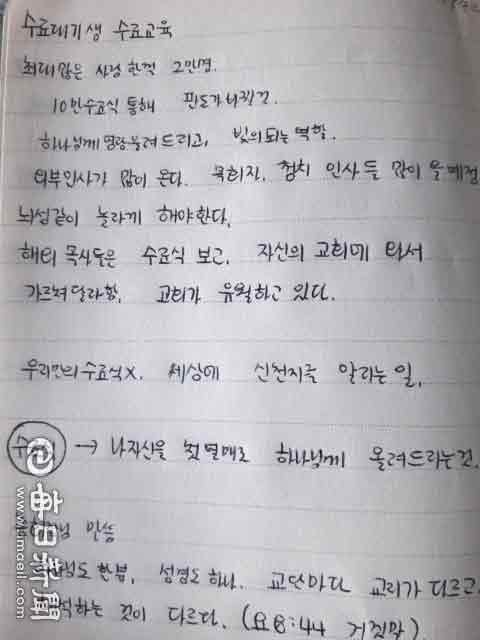 수료대기생 수료교육
최대 많은 사명 한것 2만명.
10만수료식 통해 판도가 바뀌것
하나님께 영광올려드리고, 빛의 되는 역할.
외부인사가 많이 온다. 목회자, 정치 인사들 많이 올 예정
뇌성같이 놀라게 해야한다.
해외 목사들은 수료식 보고, 자신의 교회에 와서
가르쳐 달라함. 교회가 유월하고 있다.
우리만의 수료식X. 세상에 신천지를 알리는 일.
→ 나자신을 첫 열매로 하나님께 올려드리는것.
말씀
한분, 성경도 하나. 교단마다 교리가 다르고
하는 것이 다르다. (요8:44 거짓말)
每日新聞
www.imaeil.com